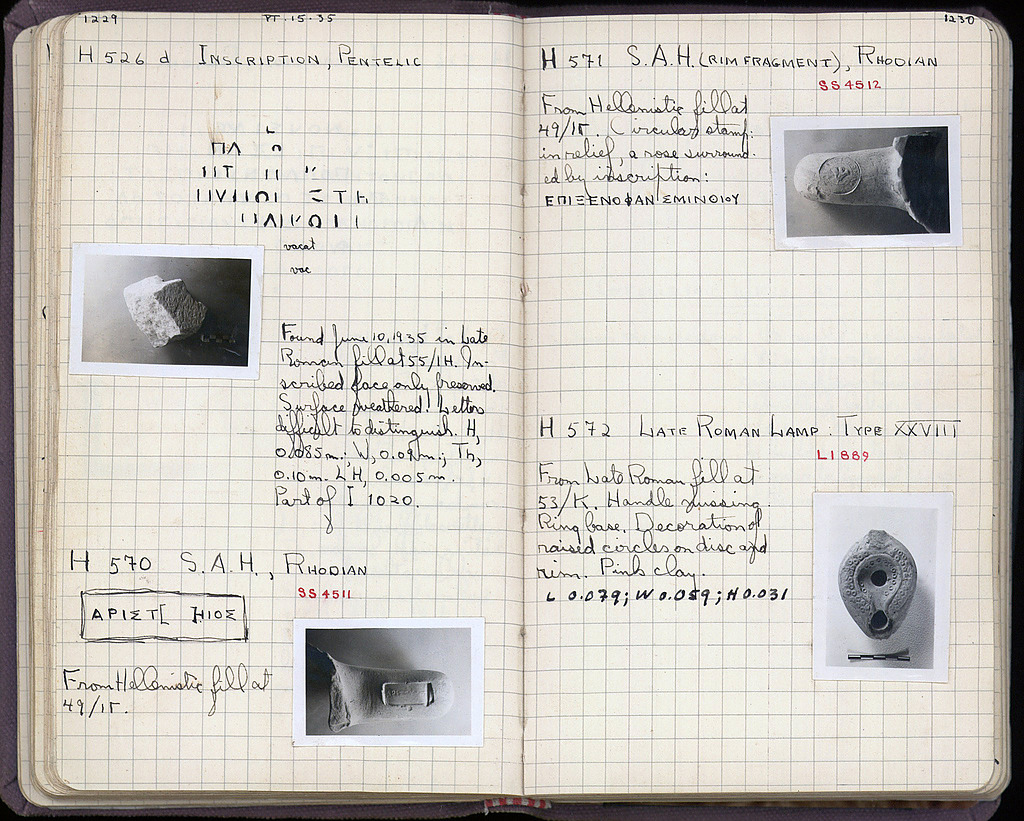 1229
PT. 15-35
H 526 d INSCRIPTION, PENTELIC
ΠΛ
vacat
vac
Found June 10, 1935 in Late
Roman fill at 55/ΙΗ. In-
scribed face only preserved.
Surface weathered. Letters
difficult to distinguish. H,
0.085 m.; W, 0.09 m.; Th,
0.10 m. L H, 0.005 m.
Part of I 1020.
H 570 S.A.H., RHODIAN
SS 4511
ΑΡΙΣΤ[ ]ΗΙΟΣ
From Hellenistic fill at
49/ΙΓ.
1230
H 571 S.A.H. (RIM FRAGMENT), RHODIAN
SS 4512
From Hellenistic fill at
49/ΙΓ. Circular stamp:
in relief, a rose surround-
ed by inscription:
ΕΠΙΞΕΝΟΦΑΝ ΣΜΙΝΘΙΟΥ
H 572 LATE ROMAN LAMP: TYPE XXVIII
L1889
From Late Roman fill at
53/Κ. Handle missing.
Ring base. Decoration of
raised circles on disc and
rim. Pink clay.
L 0.079; W 0.059; H 0.031